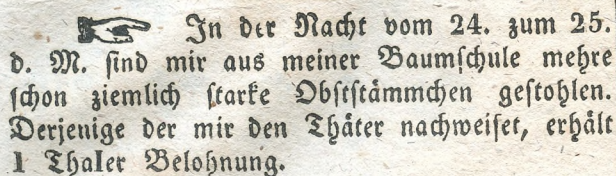 ☞ In der Nacht vom 24. zum 25.
d. M. sind mir aus meiner Baumschule mehre
schon ziemlich starke Obststämmchen gestohlen.
Derjenige der mir den Thäter nachweiset, erhält
1 Thaler Belohnung.